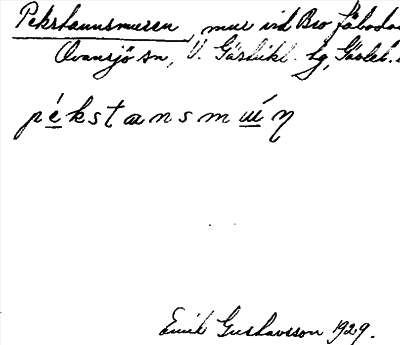 Pekstaunsmuren, mur vid Bro fäbodar
Ovansjö sn, V. Gästrikl. hg, Gävleb.
pékstansmuŕη
Emik Gustavsson 1929.